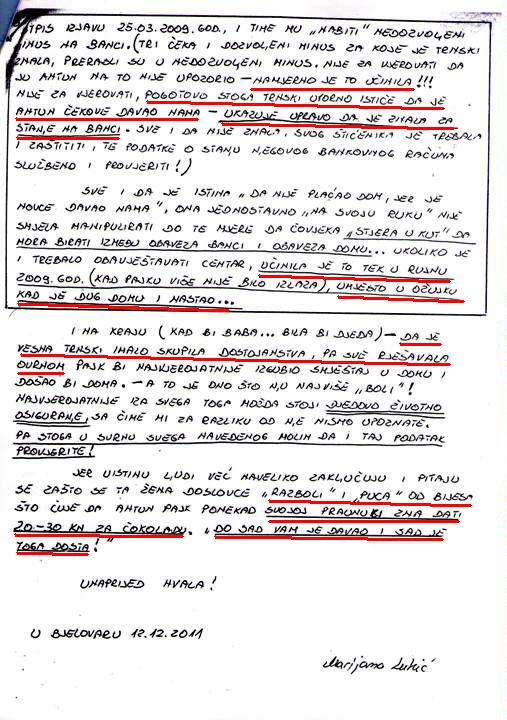 POTPIS IZJAVU 25.03.2009.GOD., I TIME MU „NABITI" NEDOZVOLJENI
MINUS NA BANCI.(TRI ČEKA I DOZVOLJENI MINUS ZA KOJE JE TRNSKI
ZNALA, PRERASLI SU U NEDOZVOLJENI MINUS. NIJE ZA VJEROVATI DA
JU ANTUN NA TO NIJE UPOZORIO - NAMJERNO JE TO UČINILA!!!
NIJE ZA VJEROVATI, POGOTOVO STOGA TRNSKI UPORNO ISTIČE DA JE
ANTUN ČEKOVE DAVAO NAMA - UKAZUJE UPRAVO DA JE ZNALA ZA
STANJE NA BANCI. SVE I DA NIJE ZNALA, SVOG ŠTIĆENIKA JE TREBALA
I ZAŠTITITI, TE PODATKE O STANJU NJEGOVOG BANKOVNOG RAČUNA
SLUŽBENO I PROVJERITI!)
SVE I DA JE ISTINA „DA NIJE PLAĆAO DOM, JER JE
NOVCE DAVAO NAMA", ONA JEDNOSTAVNO „NA SVOJU RUKU" NIJE
SMJELA MANIPULIRATI DO TE MJERE DA ČOVJEKA „STJERA U KUT" DA
MORA BIRATI IZMEĐU OBAVEZA BANCI I OBAVEZA DOMU... UKOLIKO JE
I TREBALO OBAVJEŠTAVATI CENTAR, UČINILA JE TO TEK U RUJNU
2009.GOD.(KAD PAJKU VIŠE NIJE BILO IZLAZA), UMJESTO U OŽUJKU
KAD JE DUG DOMU I NASTAO...
I NA KRAJU (KAD BI BABA... BILA BI DJEDA) - DA JE
VESNA TRNSKI IMALO SKUPILA DOSTOJANSTVA, PA SVE RJEŠAVALA
OURNOM PAJK BI NAJVJEROJATNIJE IZGUBIO SMJEŠTAJ U DOMU I
DOŠAO BI DOMA. - A TO JE ONO ŠTO NJU NAJVIŠE „BOLI"!
NAJVJEROJATNIJE IZA SVEGA TOGA MOŽDA STOJI DJEDOVO ŽIVOTNO
OSIGURANJE, SA ČIME MI ZA RAZLIKU OD NJE NISMO UPOZNATE.
PA STOGA U SURHU SVEGA NAVEDENOG MOLIM DA I TAJ PODATAK
PROVJERITE!
JER UISTINU LJUDI VEĆ NAVELIKO ZAKLJUČUJU I PITAJU
SE ZAŠTO SE TA ŽENA DOSLOVCE „RAZBOLI" I „PUCA" OD BIJESA
ŠTO ČUJE DA ANTUN PAJK PONEKAD SVOJOJ PRAUNUKI ZNA DATI
20.-30 KN ZA ČOKOLADU. „DO SAD VAM JE DAVAO I SAD JE
TOGA DOSTA!"
UNAPRIJED HVALA!
U BJELOVARU 12.12.2011
Marijana Lukić